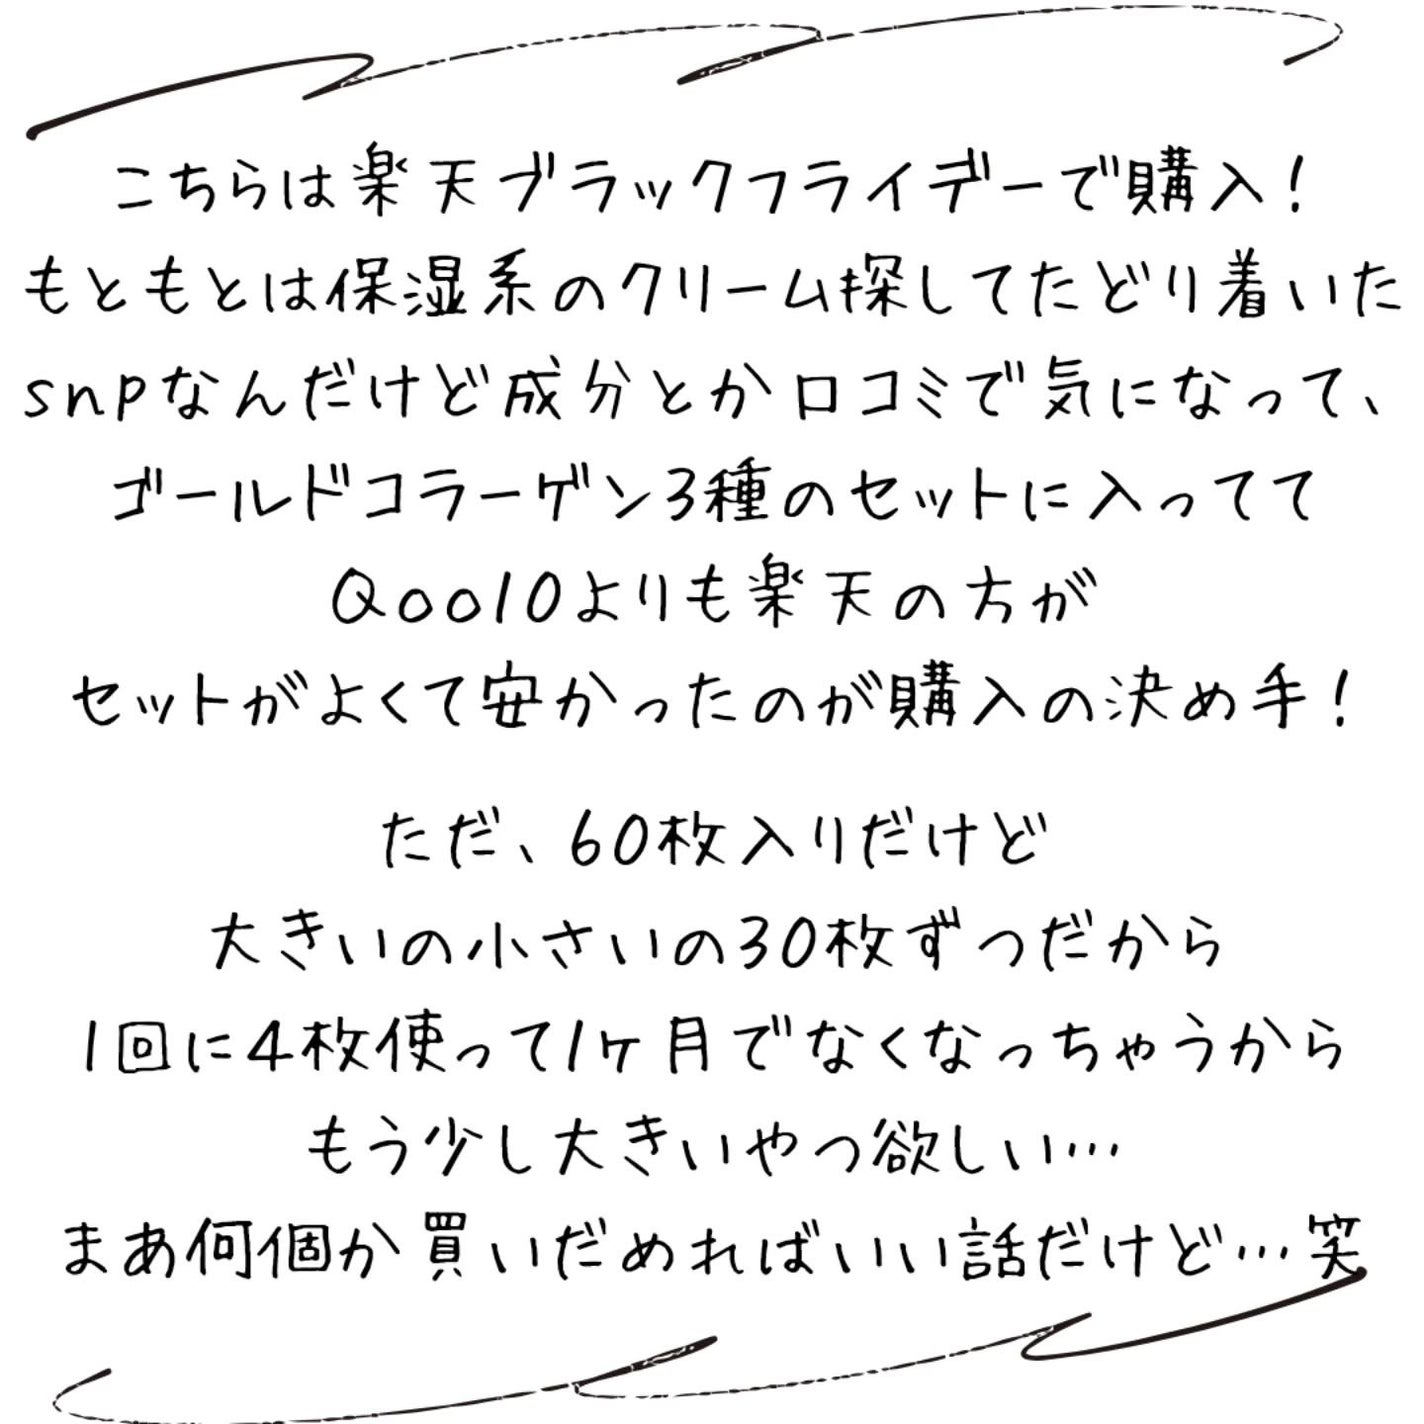 こちらは楽天ブラックフライデーで購入!
もともとは保湿系のクリーム探してたどり着いた
snpなんだけど成分とか口コミで気になって、
ゴールドコラーゲン3種のセットに入ってて
Qoo10よりも楽天の方が
セットがよくて安かったのが購入の決め手!
ただ、60枚入りだけど
大きいの小さいの30枚ずつだから
1回に4枚使って1ヶ月でなくなっちゃうから
もう少し大きいやつ欲しい…
まあ何個か買いだめればいい話だけど…笑